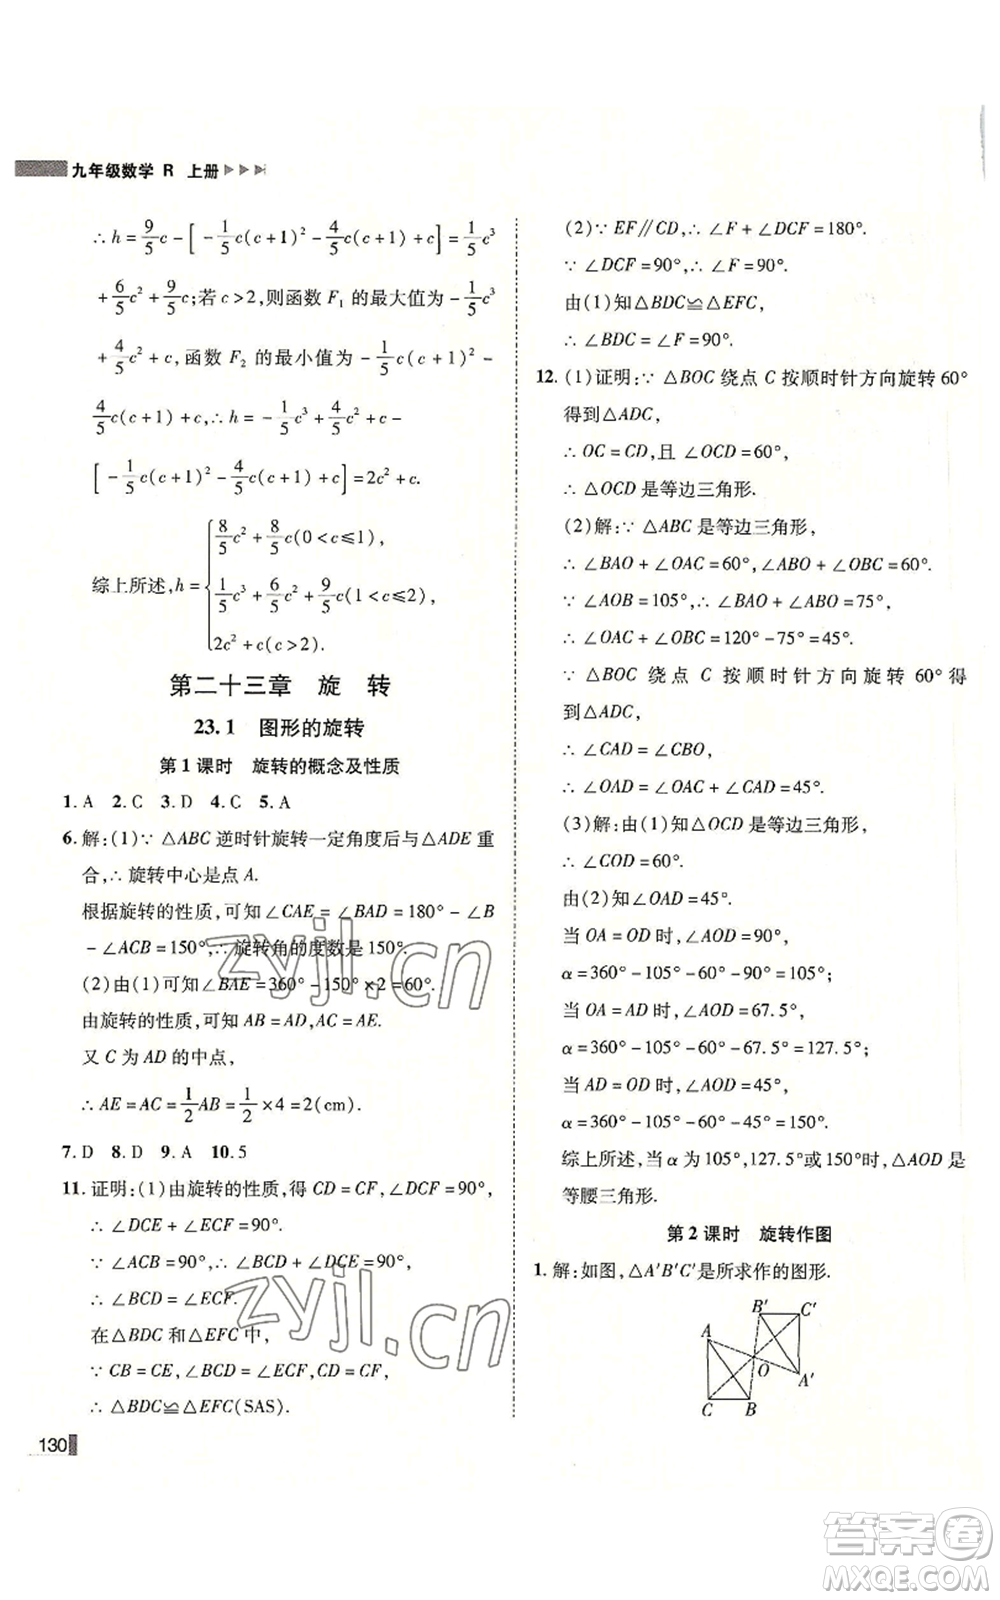 九年级数学 R 上册
∴h=9/5c-[-1/5c(c+1)²-4/5c(c+1)+c]=1/5c³
+6/5c²+9/5c;若c>2,则函数F₁的最大值为-1/5c³
+4/5c²+c,函数F₂的最小值为-1/5c(c+1)²-
4/5c(c+1)+c,∴h=-1/5c³+4/5c²+c-
[-1/5c(c+1)²-4/5c(c+1)+c]=2c²+c.
综上所述,h={8/5c²+8/5c(0<c≤1),
1/5c³+6/5c²+9/5c(1<c≤2),
2c²+c(c>2).
第二十三章 旋 转
23.1 图形的旋转
第1课时 旋转的概念及性质
1. A 2. C 3. D 4. C 5. A
6. 解:(1)∵△ABC逆时针旋转一定角度后与△ADE重
合,∴旋转中心是点A.
根据旋转的性质,可知∠CAE=∠BAD=180°-∠B
-∠ACB=150°,∴旋转角的度数是150°.
(2)由(1)可知∠BAE=360°-150°×2=60°.
由旋转的性质,可知AB=AD,AC=AE.
又C为AD的中点,
∴AE=AC=1/2AB=1/2×4=2(cm).
7. D 8. D 9. A 10. 5
11. 证明:(1)由旋转的性质,得CD=CF,∠DCF=90°,
∴∠DCE+∠ECF=90°.
∵∠ACB=90°,∴∠BCD+∠DCE=90°.
∴∠BCD=∠ECF.
在△BDC和△EFC中,
∵CB=CE,∠BCD=∠ECF,CD=CF,
∴△BDC≌△EFC(SAS).
130
(2)∵EF∥CD,∴∠F+∠DCF=180°.
∵∠DCF=90°,∴∠F=90°.
由(1)知△BDC≌△EFC,
∴∠BDC=∠F=90°.
12. (1)证明:∵△BOC绕点C按顺时针方向旋转60°
得到△ADC,
∴OC=CD,且∠OCD=60°,
∴△OCD是等边三角形.
(2)解:∵△ABC是等边三角形,
∴∠BAO+∠OAC=60°,∠ABO+∠OBC=60°.
∵∠AOB=105°,∴∠BAO+∠ABO=75°,
∴∠OAC+∠OBC=120°-75°=45°.
∵△BOC绕点C按顺时针方向旋转60°得
到△ADC,
∴∠CAD=∠CBO,
∴∠OAD=∠OAC+∠CAD=45°.
(3)解:由(1)知△OCD是等边三角形,
∴∠COD=60°.
由(2)知∠OAD=45°,
当OA=OD时,∠AOD=90°,
α=360°-105°-60°-90°=105°;
当OA=AD时,∠AOD=67.5°,
α=360°-105°-60°-67.5°=127.5°;
当AD=OD时,∠AOD=45°,
α=360°-105°-60°-45°=150°.
综上所述,当α为105°,127.5°或150°时,△AOD是
等腰三角形.
第2课时 旋转作图
1. 解:如图,△A′B′C′是所求作的图形.
B′ C′
A
O A′
C B
zyjl.cn
zyjl.cn
答案卷
MXQE.COM